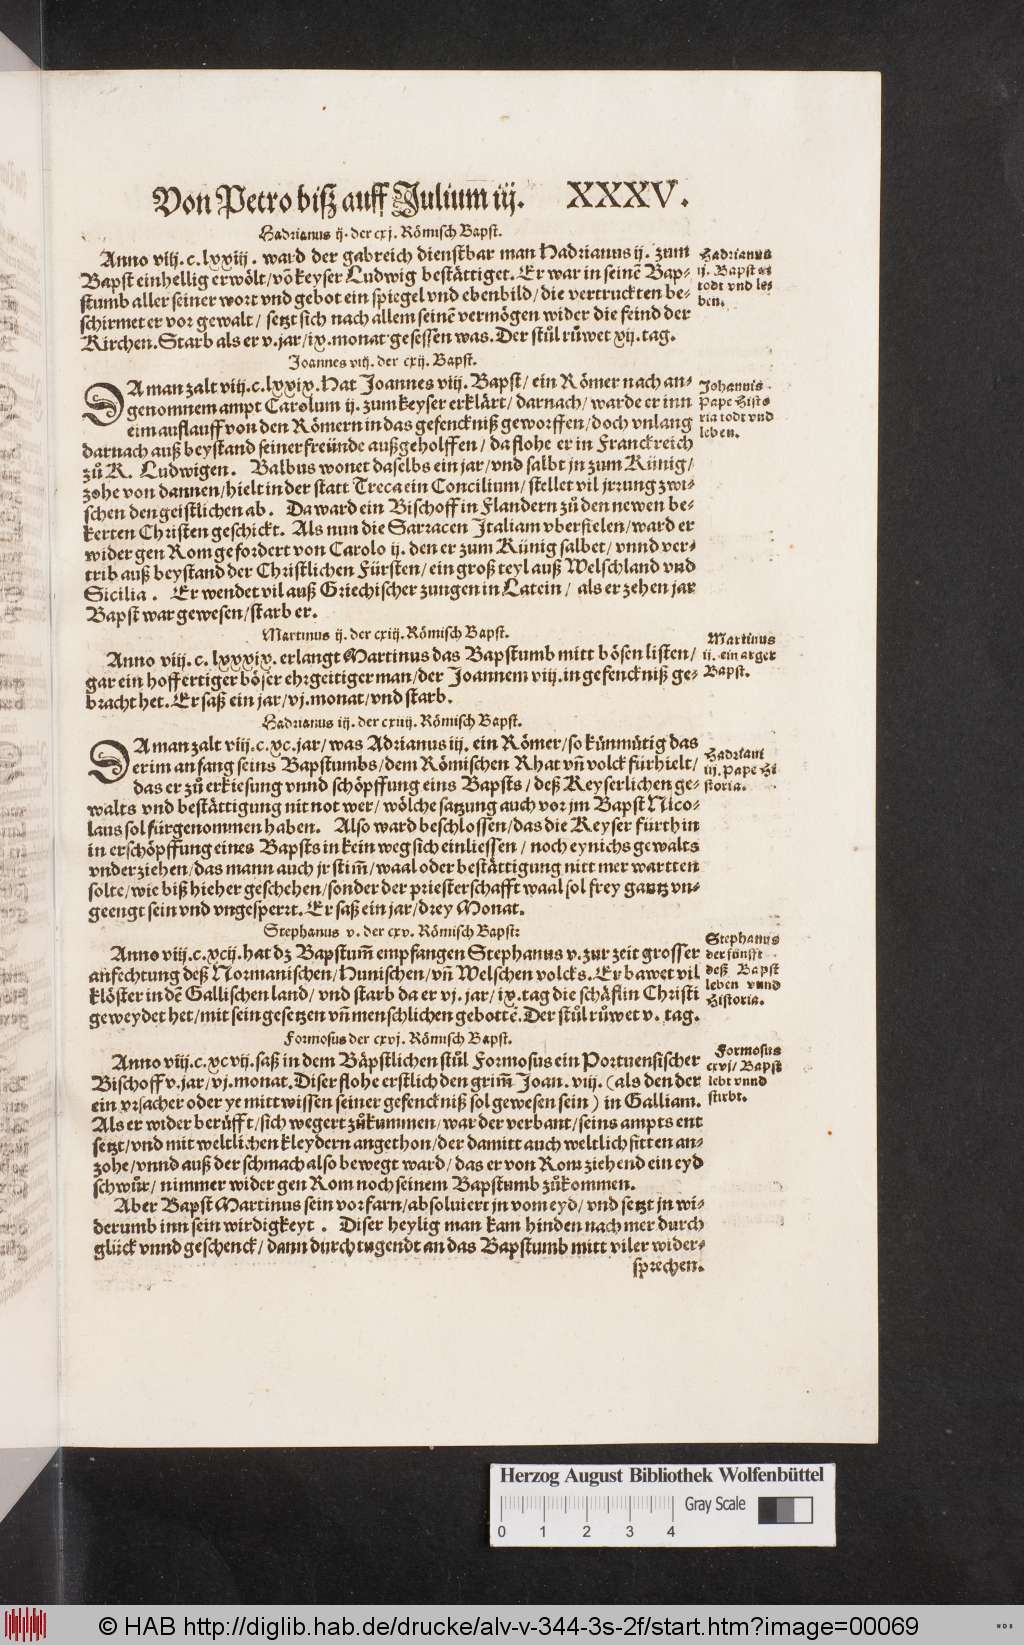 Von Petro biß auff Julium̄ iij. XXXV.
Hadrianus ij. der cxj. Römisch Bapst.
Anno viij. c. lxxiij. ward der gabreich dienstbar man Hadrianus ij. zum
Bapst einhellig erwölt/ võ keyser Ludwig bestättiget. Er war in seinẽ Bap-
stumb aller seiner wort vnd gebot ein spiegel vnd ebenbild/ die vertruckten be-
schirmet er vor gewalt/ setzt sich nach allem seinẽ vermögen wider die feind der
Kirchen. Starb als er v. jar/ ix. monat gesessen was. Der stůl růwet xij. tag.
Hadrianus
ij. Bapst es
todt vnd le-
ben.
Joannes viij. der cxij. Bapst.
DA man zalt viij. c. lxxix. Hat Joannes viij. Bapst/ ein Römer nach an-
genomnem ampt Carolum ij. zum keyser erklärt/ darnach/ warde er inn
eim aufflauff von den Römern in das gefenckniß geworffen/ doch vnlang
darnach auß beystand seiner freünde außgeholffen/ da flohe er in Franckreich
zů K. Ludwigen. Balbus wonet daselbs ein jar/ vnd salbt jn zum Künig/
zohe von dannen/ hielt in der statt Treca ein Concilium/ stellet vil jrrung zwi-
schen den geistlichen ab. Da ward ein Bischoff in Flandern zů den newen be-
kerten Christen geschickt. Als nun die Sarracen Italiam vberfielen/ ward er
wider gen Rom gefordert von Carolo ij. den er zum Künig salbet/ vnnd ver-
trib auß beystand der Christlichen Fürsten/ ein groß teyl auß Welschland vnd
Sicilia. Er wendet vil auß Griechischer zungen in Latein/ als er zehen jar
Bapst war gewesen/ starb er.
Johannis
Pape Histo
ria todt vnd
leben.
Martinus ij. der cxiij. Römisch Bapst.
Anno viij. c. lxxxix. erlangt Martinus das Bapstumb mitt bösen listen/
gar ein hoffertiger böser ehrgeitiger man/ der Joannem viij. in gefenckniß ge-
bracht het. Er saß ein jar/ vj. monat/ vnd starb.
Martinus
ij. ein arger
Bapst.
Hadrianus iij. der cxiiij. Römisch Bapst.
DA man zalt viij. c. xc. jar/ was Adrianus iij. ein Römer/ so künmütig das
er im anfang seins Bapstumbs/ dem Römischen Rhat vñ volck fürhielt/
das er zů erkiesung vnnd schöpffung eins Bapsts/ deß Keyserlichen ge-
walts vnd bestättigung nit not wer/ wölche satzung auch vor jm Bapst Nico-
laus sol fürgenommen haben. Also ward beschlossen/ das die Keyser fürthin
in erschöpffung eines Bapsts in kein weg sich einliessen/ noch eynichs gewalts
vnderziehen/ das mann auch jr stim̃/ waal oder bestättigung nitt mer wartten
solte/ wie biß hieher geschehen/ sonder der priesterschafft waal sol frey gantz vn-
geengt sein vnd vngesperrt. Er saß ein jar/ drey Monat.
Hadriani
iij. Pape Hi
storia.
Stephanus v. der cxv. Römisch Bapst:
Anno viij. c. xcij. hat dz Bapstum̃ empfangen Stephanus v. zur zeit grosser
anfechtung deß Normanischen/ Hunischen/ vñ Welschen volcks. Er bawet vil
klöster in dẽ Gallischen land/ vnd starb da er vj. jar/ ix. tag die schäflin Christi
geweydet het/ mit sein gesetzen vñ menschlichen gebottẽ. Der stůl růwet v. tag.
Stephanus
der fünfft
deß Bapst
leben vnnd
Historia.
Formosus der cxvj. Römisch Bapst.
Anno viij. c. xcvij. saß in dem Bäpstlichen stůl Formosus ein Portuensischer
Bischoff v. jar/ vj. monat. Diser flohe erstlich den grim̃ Joan. viij. (als den der
ein vrsacher oder ye mittwissen seiner gefenckniß sol gewesen sein) in Galliam.
Als er wider berüfft/ sich wegert zůkummen/ war der verbant/ seins ampts ent
setzt/ vnd mit weltlichen kleydern angethon/ der damitt auch weltlich sitten an-
zohe/ vnnd auß der schmach also bewegt ward/ das er von Rom ziehend ein eyd
schwůr/ nimmer wider gen Rom noch seinem Bapstumb zůkommen.
Aber Bapst Martinus sein vorfarn/ absoluiert jn vom eyd/ vnd setzt jn wi-
derumb inn sein wirdigkeyt. Diser heylig man kam hinden nach mer durch
glück vnnd geschenck/ dann durch tugendt an das Bapstumb mitt viler wider-
sprechen.
Formosus
cxvj/ Bapst
lebt vnnd
stirbt.
Herzog August Bibliothek Wolfenbüttel
0 1 2 3 4 Gray Scale
© HAB http://diglib.hab.de/drucke/alv-v-344-3s-2f/start.htm?image=00069